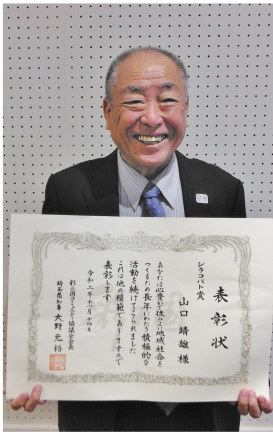 表彰状
シラコバト賞
山口靖雄様
あなたは心豊かで住みよい地域社会を
つくるため長年にわたり積極的な
活動を続けてこられました
これは他の模範でありますので
表彰します
令和二年十一月十四日
彩の国コミュニティ協議会会長
埼玉県知事 大野元裕